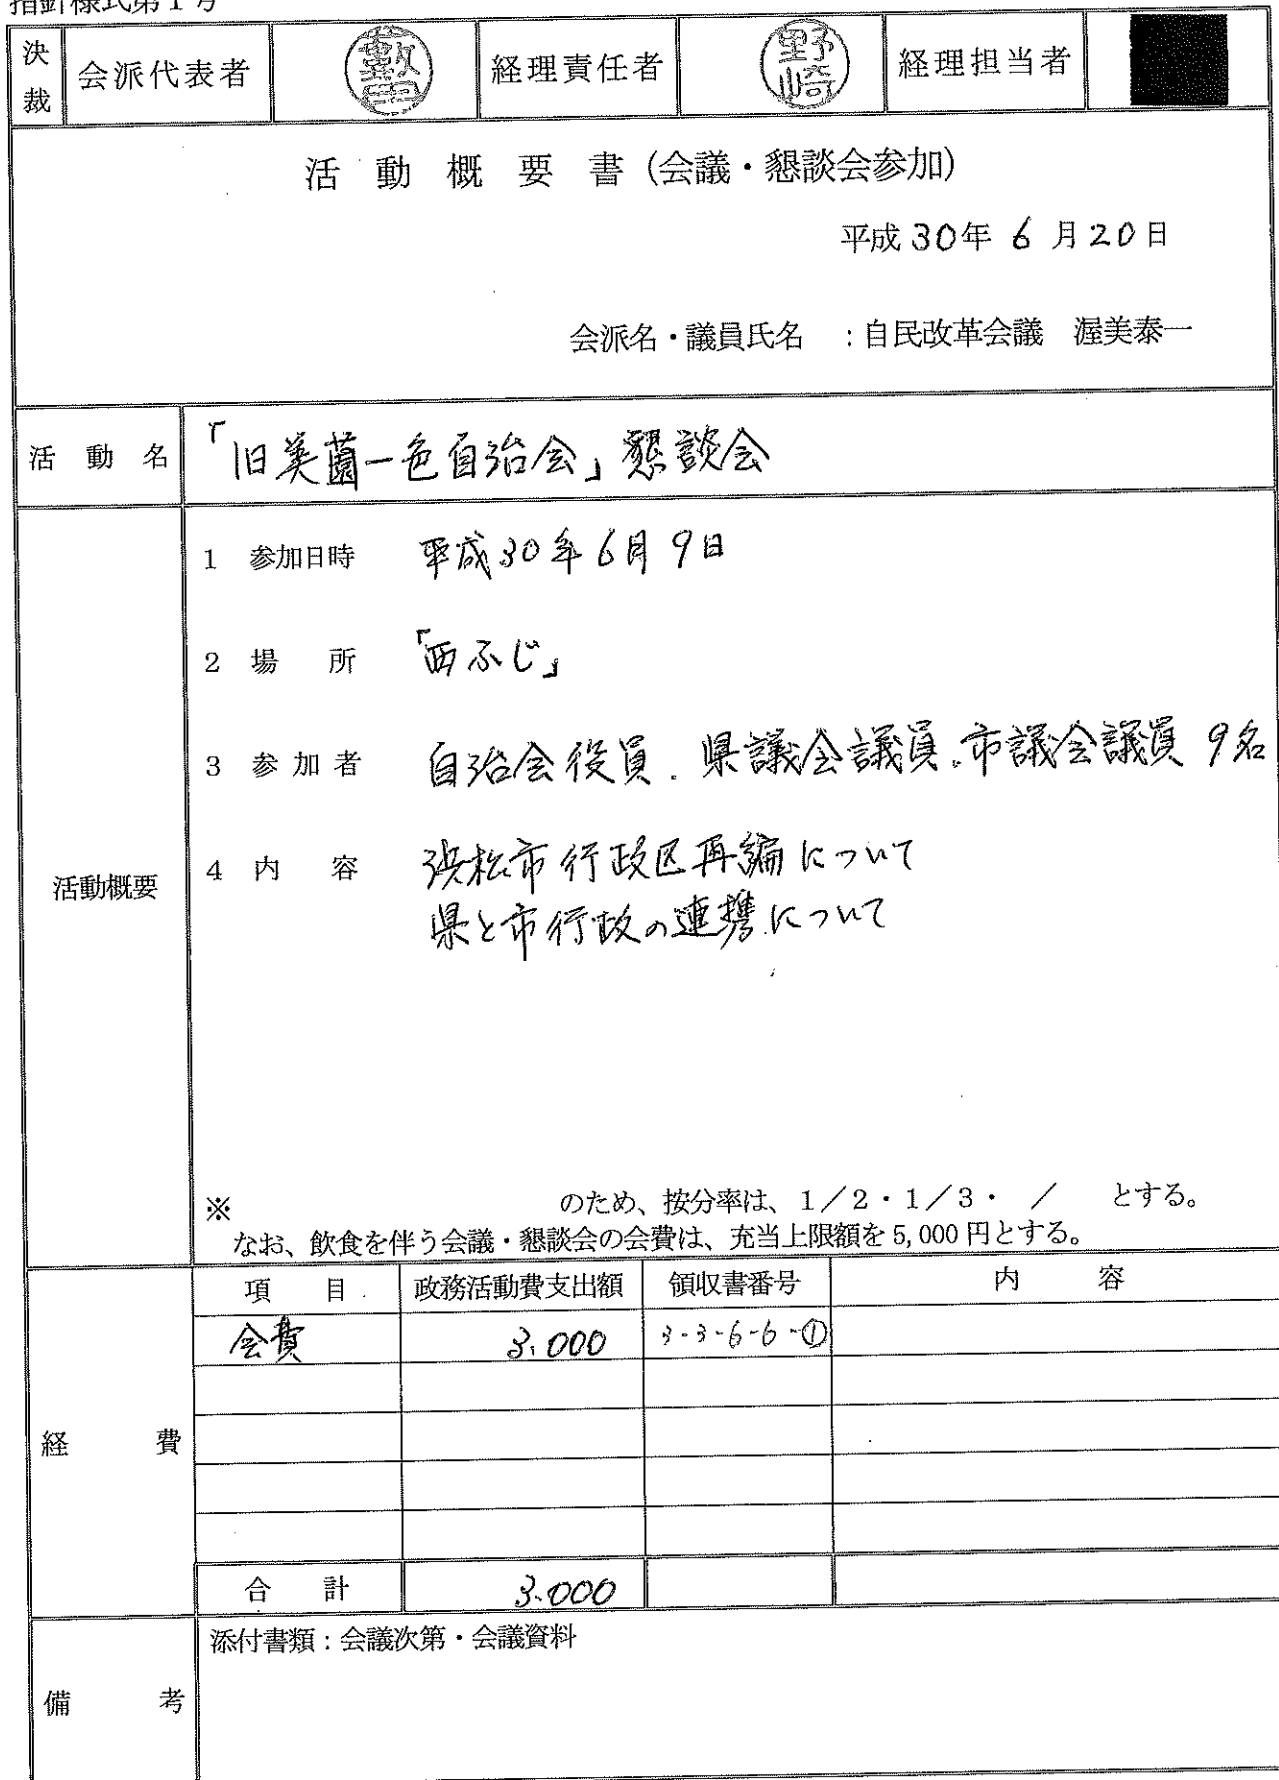 指針様式第1号
決裁 会派代表者 経理責任者 野崎 経理担当者
活動概要書(会議・懇談会参加)
平成30年6月20日
会派名・議員氏名 :自民改革会議 渥美泰一
活動名 「旧美薗一色自治会」懇談会
活動概要
1 参加日時 平成30年6月9日
2 場所 「西ふじ」
3 参加者 自治会役員、県議会議員、市議会議員 9名
4 内容 浜松市行政区再編について
県と市行政の連携について
※ のため、按分率は、1/2・1/3・ / とする。
なお、飲食を伴う会議・懇談会の会費は、充当上限額を5,000円とする。
経費
項目 政務活動費支出額 領収書番号 内容
会費 3.000 3-3-6-6-①
合計 3.000
備考 添付書類:会議次第・会議資料